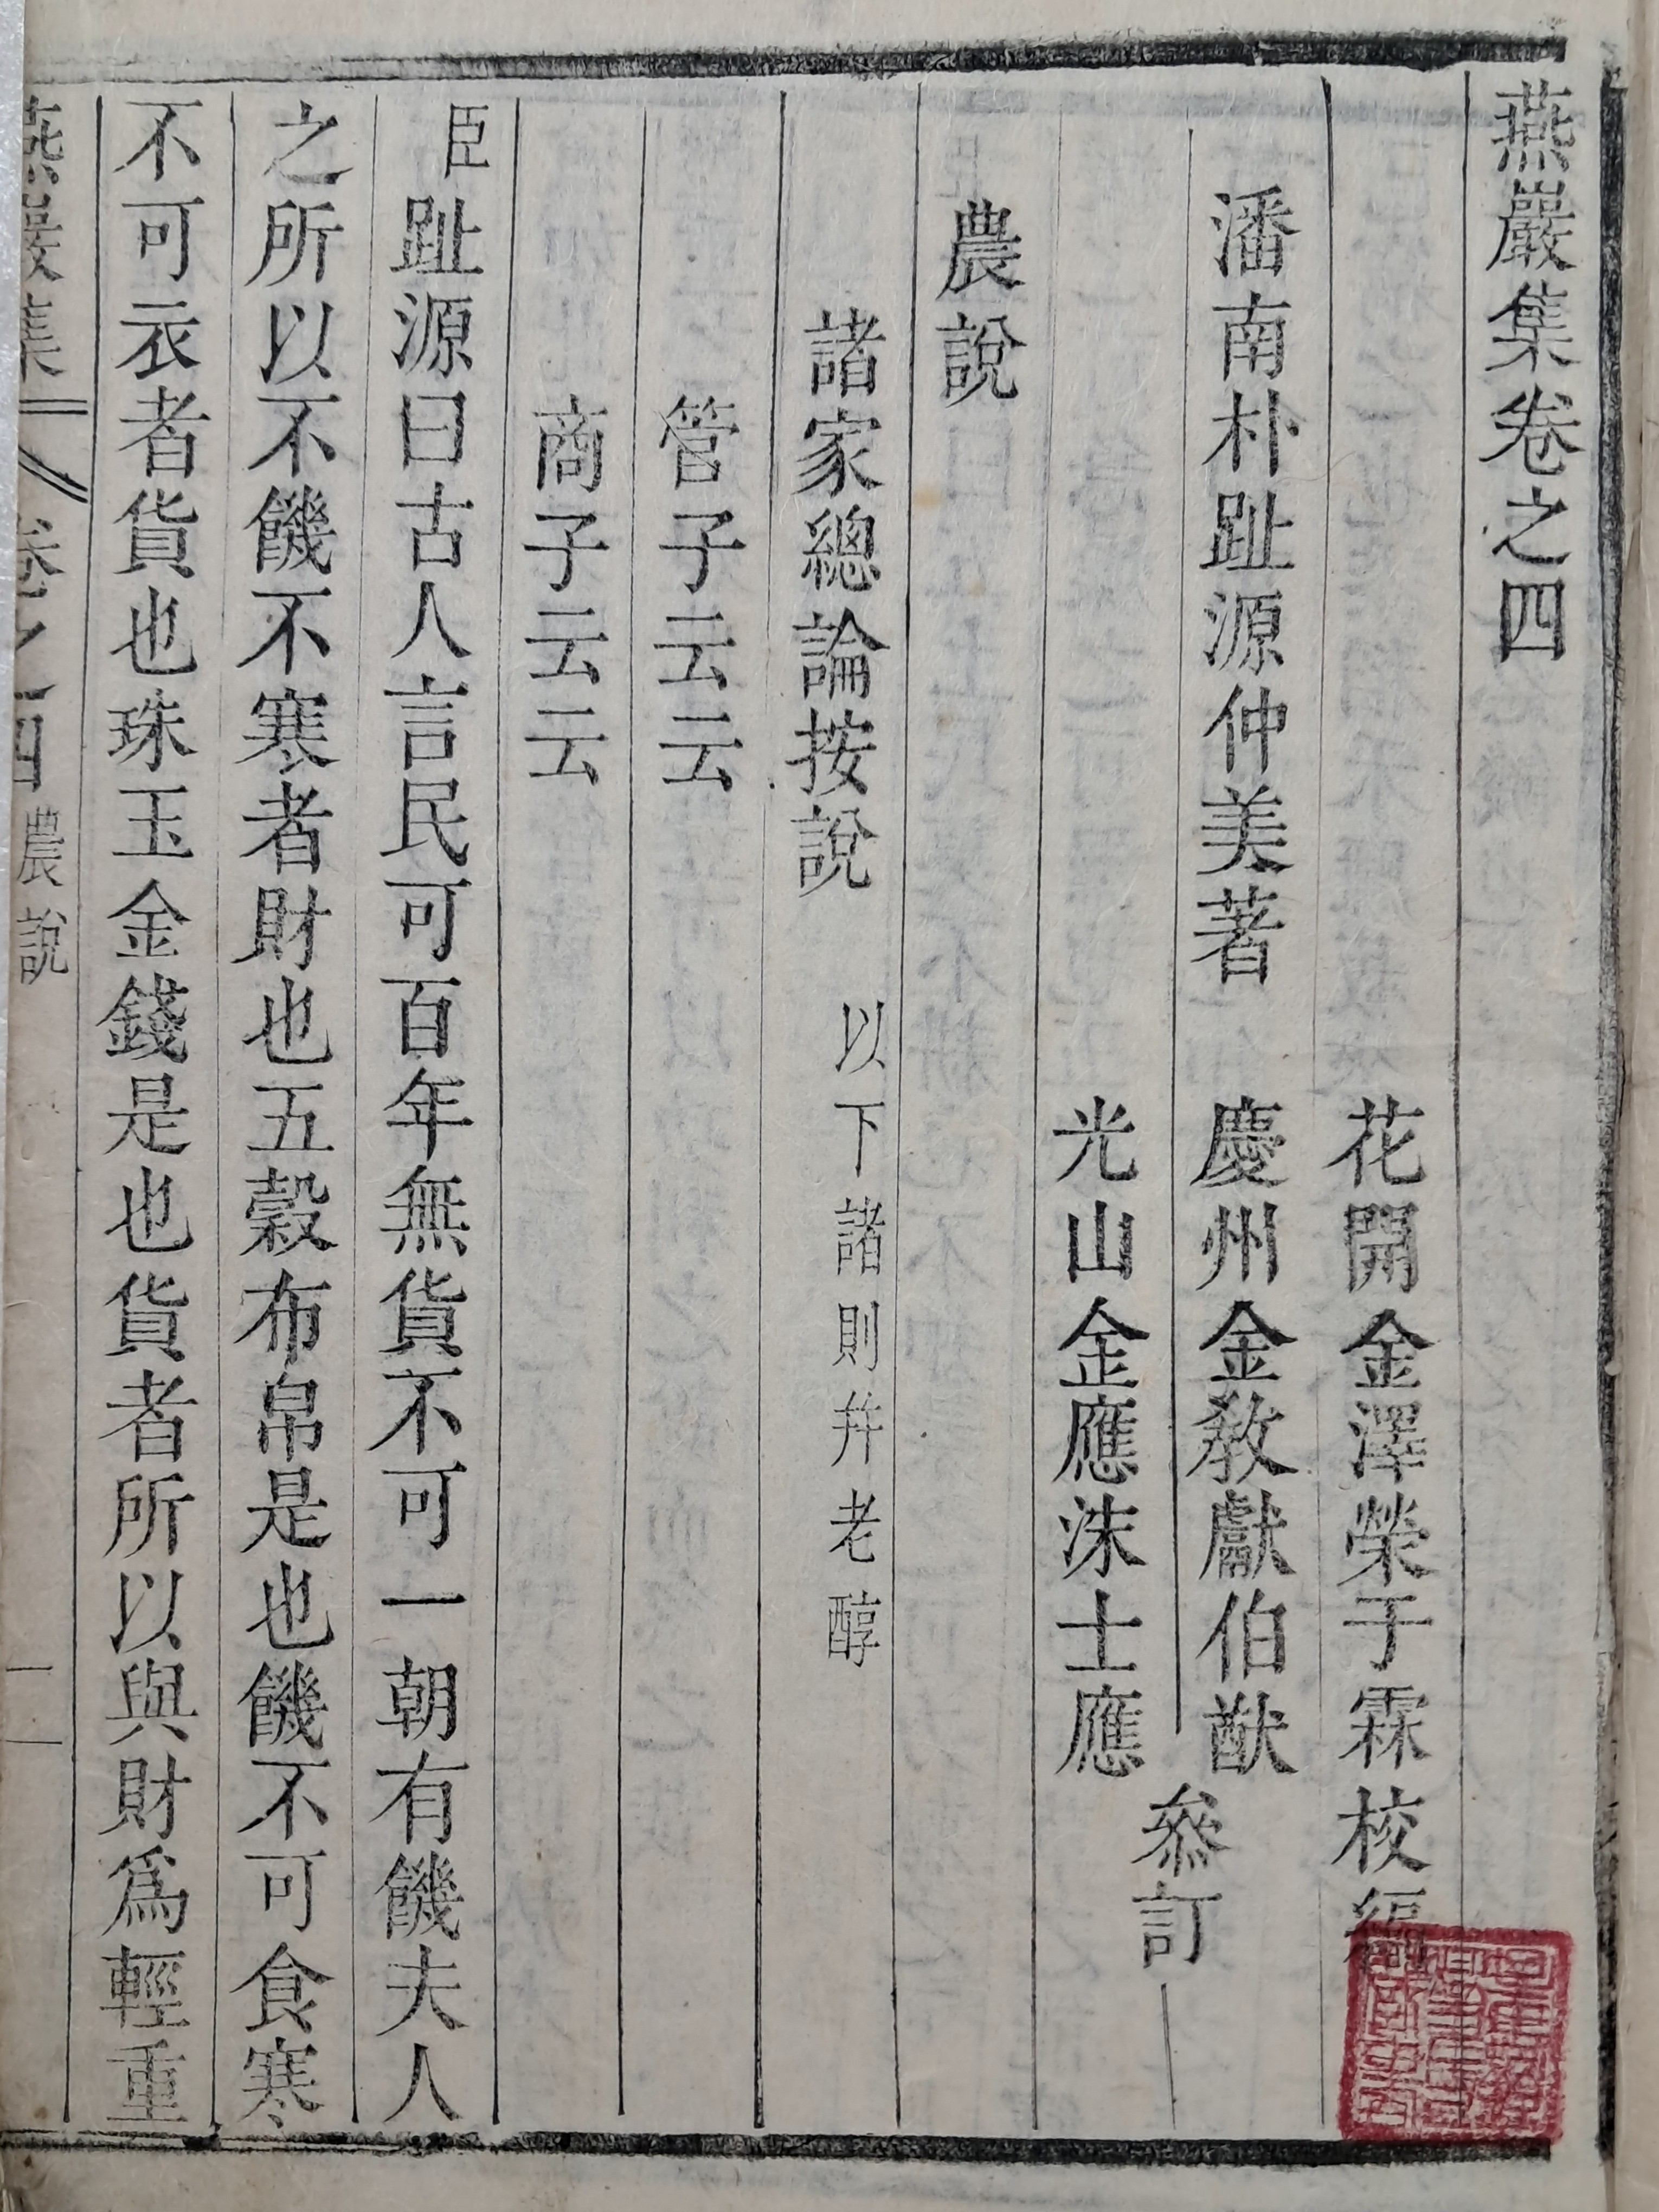 燕巖集卷之四
花開金澤榮于霖校編
潘南朴趾源仲美著
慶州金敎獻伯猷
光山金應洙士應
參訂
農說
諸家總論按說 以下諸則幷老醇
管子云云
商子云云
臣趾源曰古人言民可百年無貨不可一朝有饑夫人
之所以不饑不寒者財也五穀布帛是也饑不可食寒
不可衣者貨也珠玉金錢是也貨者所以與財爲輕重
燕巖集 卷之四 農說 一